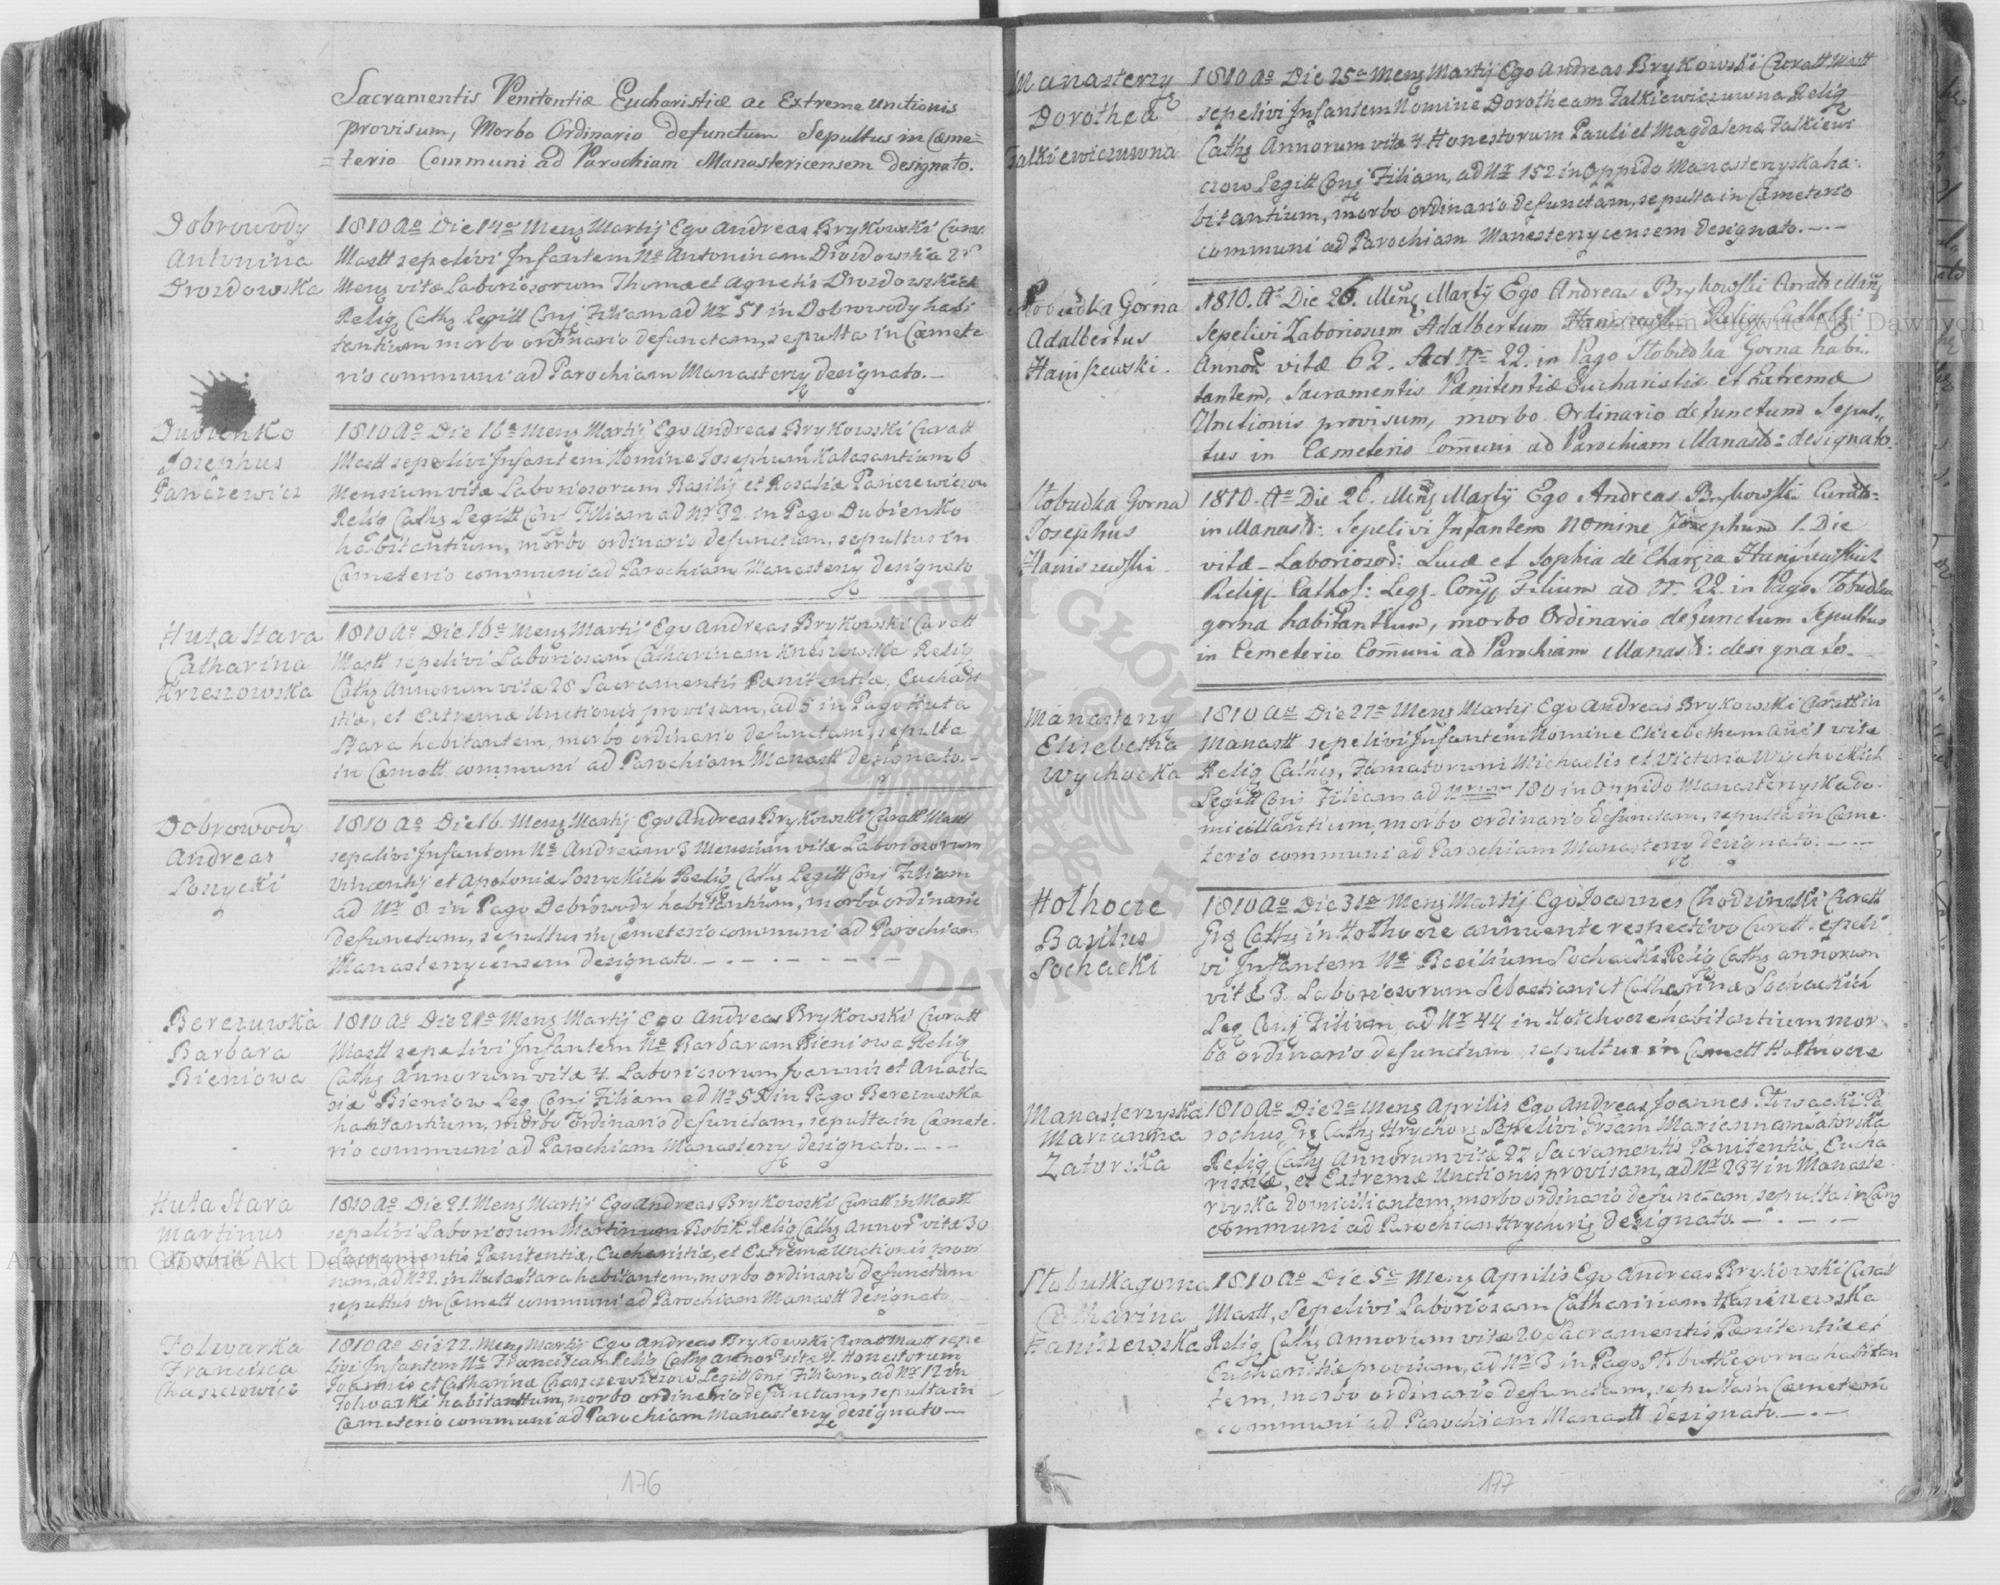 Sacramentis Penitentiæ Eucharistiæ ac Extreme unctionis
provisum, Morbo Ordinario defunctum Sepultus in Cæme=
=terio Communi ad Parochiam Manastericensem designato.
Dobrowody
Antonina
Drozdowska
1810 Ao Die 14a Mens Martij Ego Andreas Brykowski Curat
Mastt sepelivi Infantem No Antoninam Drozdowska
Mens vitæ Laboriosorum Thomæ et Agnetis Drozdowskich
Relig Caths Legitt Conj Filiam ad Nr 51 in Dobrowody habi
tantium morbo ordinario defunctam, sepulta in Cæmete
rio communi ad Parochiam Manasterzy designato.
Dubienko
Josephus
Panczewicz
1810 Ao Die 16a Mens Martij Ego Andreas Brykowski Curatt
Mastt sepelivi Infantem Nomine Josephum Kalasantium 6
Mensium vitæ Laboriosorum Basilij et Rosaliæ Panczewiczow
Relig Caths Legitt Conj Filium ad Nr 32 in Pago Dubienko
habitantium, morbo ordinario defunctum, sepultus in
Cæmeterio communi ad Parochiam Manasterzy designato
Huta Stara
Catharina
Krzeszowska
1810 Ao Die 16a Mens Martij Ego Andreas Brykowski Curatt
Mastt sepelivi Laboriosam Catharinam Krzeszowska Relig
Caths Annorum vitæ 28 Sacramentis Pœnitentiæ, Euchari
stiæ, et Extremæ Unctionis provisam, ad 5 in Pago Huta
Stara habitantem, morbo ordinario defunctam, sepulta
in Cæmett communi ad Parochiam Manastt designato.
Dobrowody
Andreas
Lonycki
1810 Ao Die 16. Mens Martij Ego Andreas Brykowski Curatt Mastt
sepelivi Infantem No Andream 3 Mensium vitæ Laboriosorum
Vincentij et Apoloniæ Lonyckich Relig Caths Legitt Conj Filium
ad Nr 8 in Pago Dobrowody habitantium, morbo ordinario
defunctum, sepultus in Cæmeterio communi ad Parochiam
Manasterzycensem designato.
Berezuwka
Barbara
Bieniowa
1810 Ao Die 21a Mens Martij Ego Andreas Brykowski Curatt
Mastt sepelivi Infantem No Barbaram Bieniowa Relig
Caths Annorum vitæ 4. Laboriosorum Joannis et Anasta
siæ Bieniow Leg Conj Filiam ad Nr in Pago Berezuwka
habitantium, morbo ordinario defunctam, sepulta in Cæmete
rio communi ad Parochiam Manasterzy designato.
Huta Stara
Martinus
Bobik
1810 Ao Die 21. Mens Martij Ego Andreas Brykowski Curatt in Mastt
sepelivi Laboriosum Martinum Bobik Relig Caths Annor vitæ 30
Sacramentis Pœnitentiæ, Eucharistiæ, et Extremæ Unctionis provi
sum, ad Nr 2 in Huta Stara habitantem, morbo ordinario defunctum
sepultus in Cæmett communi ad Parochiam Manastt designato
Folwarka
Francisca
Chaszczowicz
1810 Ao Die 22. Mens Martij Ego Andreas Brykowski Curatt Mastt sepe
livi Infantem No Franciscam Relig Caths annor vitæ 4. Honestorum
Joannis et Catharinæ Chaszczewiczow Legitt Conj Filiam, ad Nr 12 in
Folwarki habitantium, morbo ordinario defunctam, sepulta in
Cæmeterio communi ad Parochiam Manasterzy designato
176
Manasterzy
Dorothea
Falkiewiczuwna
1810 Ao Die 25a Mens Martij Ego Andreas Brykowski Curatt Mastt
sepelivi Infantem Nomine Dorotheam Falkiewiczuwna Relig
Caths Annorum vitæ 4 Honestorum Pauli et Magdalenæ Falkiewi
czow Legitt Conj Filiam, ad Nr 152 in Oppido Manasterzyska ha:
bitantium, morbo ordinario defunctam, sepulta in Cæmeterio
communi ad Parochiam Manasterzycensem designato.
Stobudka Gorna
Adalbertus
Haniszewski.
1810. Ao Die 26. Mens Martij Ego Andreas Brykowski Curat Man
Sepelivi Laboriosum Adalbertum Haniszewski Relig Cathol:
Annor vitæ 62. Ad Nr 22. in Pago Stobudka Gorna habi..
tantem, Sacramentis Pœnitentiæ Eucharistiæ et Extremæ
Unctionis provisum, morbo Ordinario defunctum Sepul..
tus in Cæmeterio Comuni ad Parochiam Manast: designato.
Stobudka Gorna
Josephus
Haniszewski.
1810. Ao Die 26. Mens Martij Ego Andreas Brykowski Curat=
in Manast: Sepelivi Infantem Nomine Josephum 1. Die
vitæ Laboriosor: Lucæ et Sophia de Haniszewskich
Relig. Cathol: Leg. Conj Filium ad Nr. 22. in Pago Stobudka
gorna habitantium, morbo Ordinario defunctum Sepultus
in Cemeterio Comuni ad Parochiam Manast: designato.
Manasterzy
Elisebetha
Wychocka
1810 Ao Die 27a Mens Martij Ego Andreas Brykowski Curatt in
Manastt sepelivi Infantem Nomine Elisebetham vitæ
Relig Caths, Famatorum Michaelis et Victoria Wychockich
Legitt Conj Filiam ad Nrum 180 in Oppido Manasterzyska do
micillantium, morbo ordinario defunctam, sepulta in Cæme
terio communi ad Parochiam Manasterzy designato.
Holhocze
Basilus
Sochacki
1810 Ao Die 31a Mens Martij Ego Joannes Chodzinski Curatt
Grg Caths in Holhocze annuente respectivo Curatt sepeli
vi Infantem No Basilium Sochacki Relig Caths annorum
vitæ 3. Laboriosorum Sebastiani et Catharinæ Sochackich
Leg Conj Filium, ad Nr 44 in Holchocze habitantium mor
bo ordinario defunctum, sepultus in Cæmett Holhocze
Manasterzyska
Marianna
Zaturska
1810 Ao Die 2a Mens Aprilis Ego Andreas Joannes Pa
rochus Grg Caths Sepelivi Marianna
Relig Caths Annorum vitæ 27 Sacramentis Pœnitentiæ Eucha
ristiæ, et Extremæ Unctionis provisam, ad Nr 234 in Manaste
rzyska domiciliantem, morbo ordinario defunctam, sepulta in Cæm
communi ad Parochiam designato
Stobutka gorna
Catharina
Haniszewska
1810 Ao Die 5a Mens Aprilis Ego Andreas Brykowski Curatt
Mastt, Sepelivi Laboriosam Catharinam Haniszewska
Relig Caths Annorum vitæ 20 Sacramentis Pœnitentiæ et
Eucharistiæ provisam, ad Nr 3 in Pago Stobutka gorna habitan
tem, morbo ordinario defunctam, sepulta in Cæmeterio
communi ad Parochiam Manastt designato.
177
Archiwum Główne Akt Dawnych
Archiwum Główne Akt Dawnych
ARCHIWUM GŁÓWNE AKT DAWNYCH